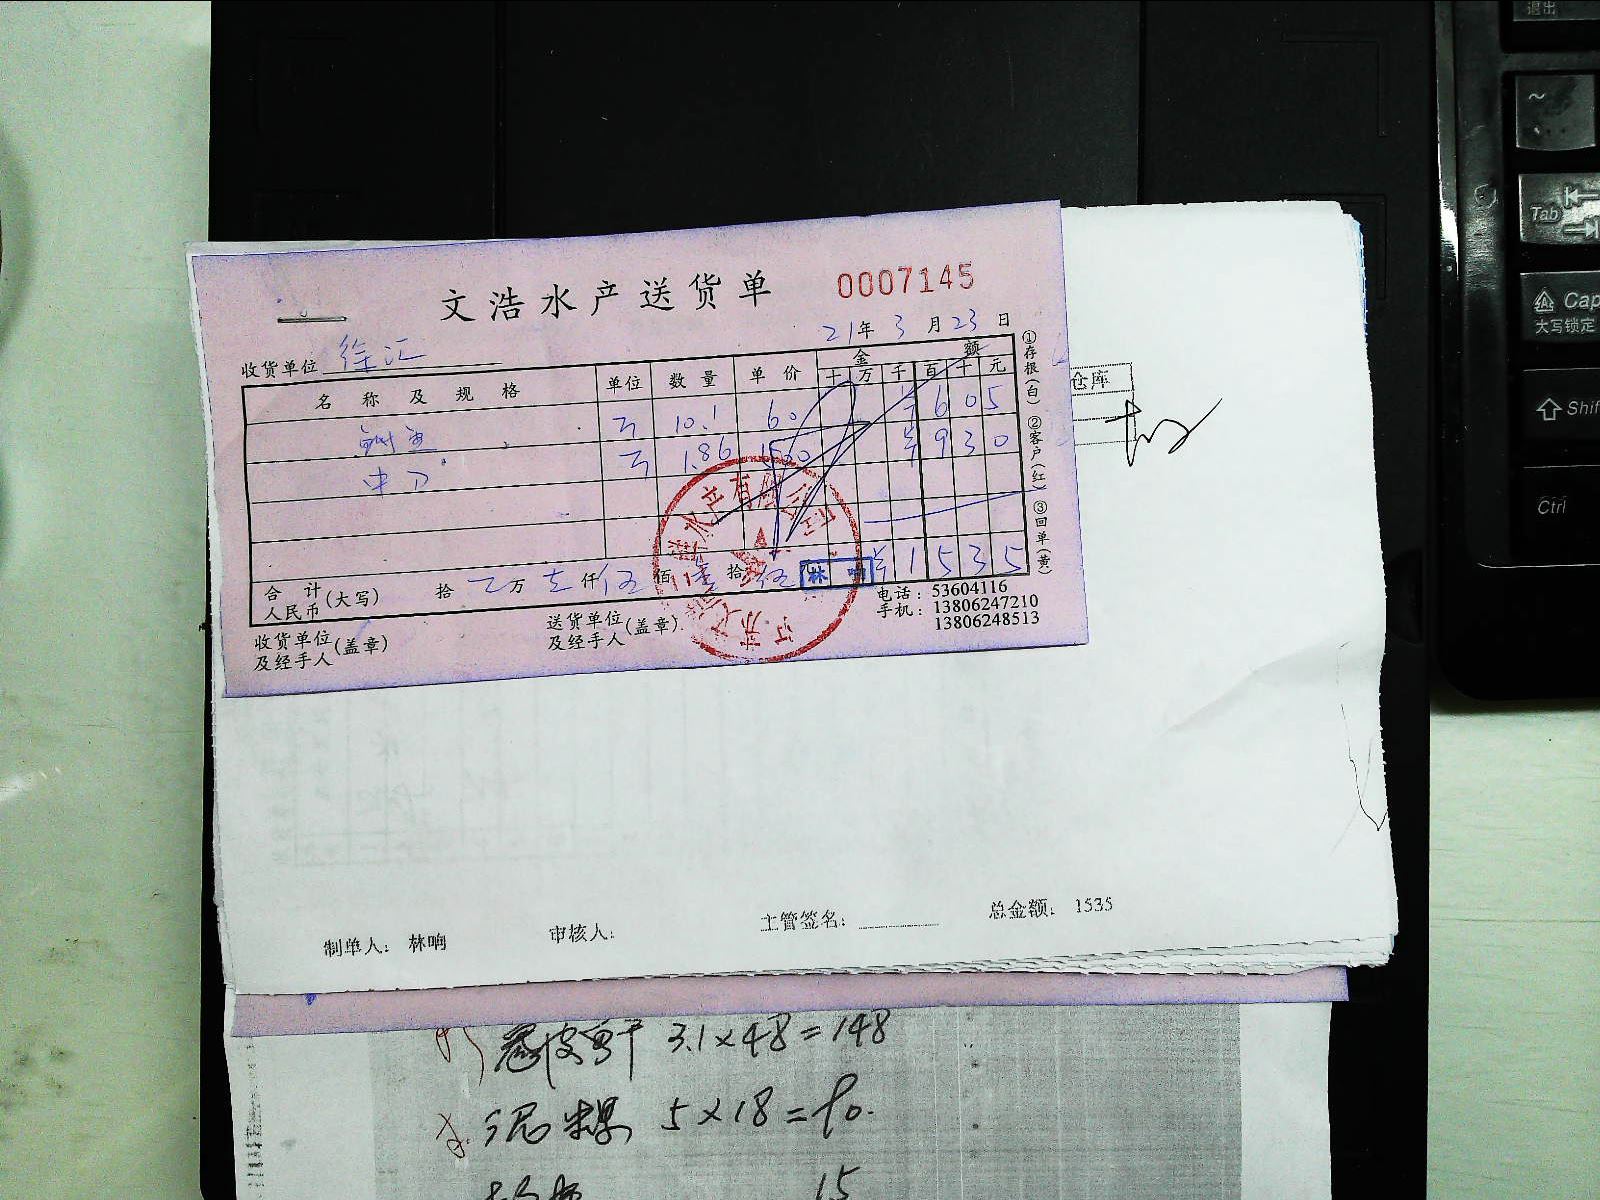 文浩水产送货单 0007145
21年3月23日
收货单位 徐汇
名称及规格 单位 数量 单价 金额
十 万 千 百 十 元
鮰鱼 斤 10.1 60 ¥ 6 0 5
中刀 斤 1.86 500 ¥ 9 3 0
合计
人民币(大写) 拾 万 仟 伍 佰 叁 拾 伍 林响 ¥ 1 5 3 5
收货单位
及经手人(盖章)
送货单位
及经手人(盖章)
电话:53604116
手机:13806247210
13806248513
①存根(白) ②客户(红) ③回单(黄)
水产有限公司
仓库
制单人: 林响 审核人: 主管签名: 总金额: 1535
3.1×48=148
5×18=90.
15
退出
~
Tab
Cap
大写锁定
Shif
Ctrl